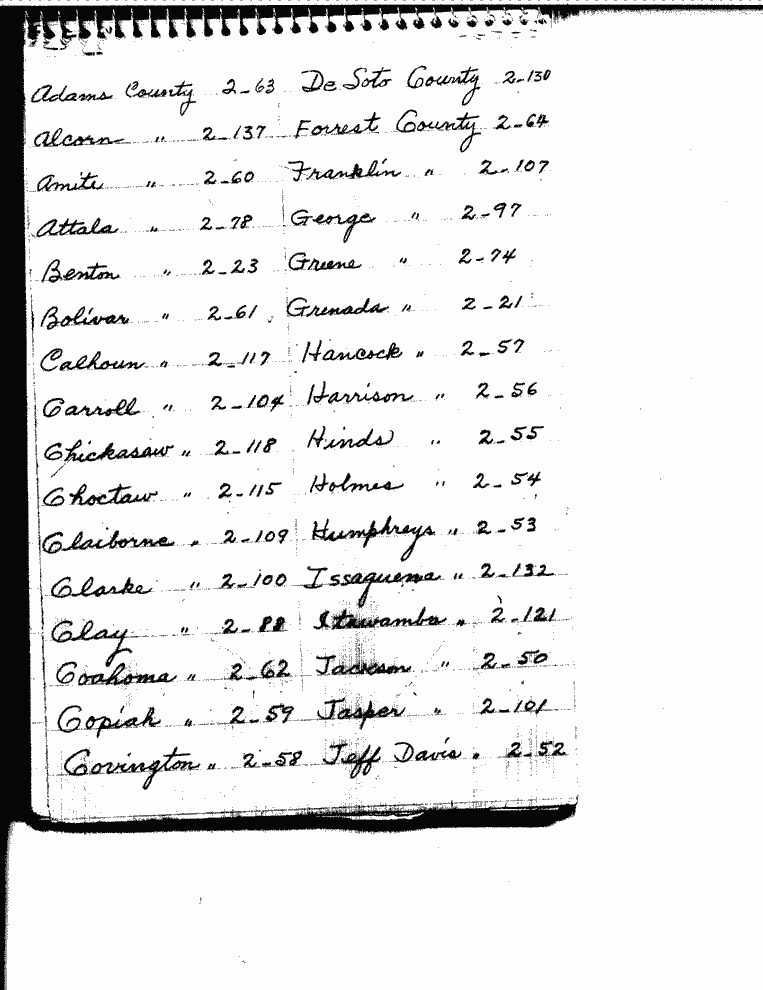 Adams County 2-63 De Soto County 2-130
Alcorn " 2-137 Forrest County 2-64
Amite " 2-60 Franklin " 2-107
Attala " 2-78 George " 2-97
Benton " 2-23 Greene " 2-74
Bolivar " 2-61 Grenada " 2-21
Calhoun " 2-117 Hancock " 2-57
Carroll " 2-104 Harrison " 2-56
Chickasaw " 2-118 Hinds " 2-55
Choctaw " 2-115 Holmes " 2-54
Claiborne " 2-109 Humphreys " 2-53
Clarke " 2-100 Issaquena " 2-132
Clay " 2-88 Itawamba " 2-121
Coahoma " 2-62 Jackson " 2-50
Copiah " 2-59 Jasper " 2-101
Covington " 2-58 Jeff Davis " 2-52